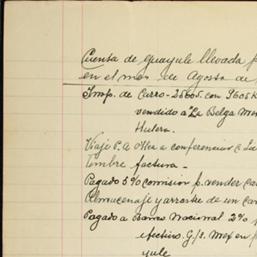 Cuenta de Guayule llevada p
en el mes de Agosto de
Imp. de Carro-25605. con 9605 K
vendido a "La Belga Mex
Hulera.
Viaje P. A Oller a conferenciar c. Lu
Timbre factura-
Pagado 5% Comision p. vender ca
Almacenaje y arrastre de un ca
Pagado a Banco Nacional 2% p
efectivo. G/s. Mex en p
yule